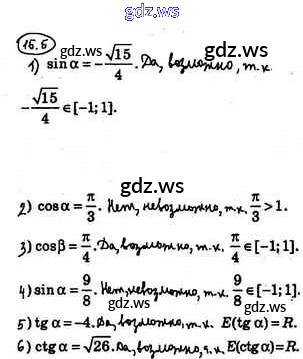 gdz.ws
15.5
1) sin α = -√15/4. Да, возможно, т.к.
-√15/4 ∈ [-1; 1].
gdz.ws
2) cos α = π/3. Нет, невозможно, т.к. π/3 > 1.
3) cos β = π/4. Да, возможно, т.к. π/4 ∈ [-1; 1].
4) sin α = 9/8. Нет, невозможно, т.к. 9/8 ∉ [-1; 1].
5) tg α = -4. Да, возможно, т.к. E(tg α) = R.
6) ctg α = √26. Да, возможно, т.к. E(ctg α) = R.
gdz.ws